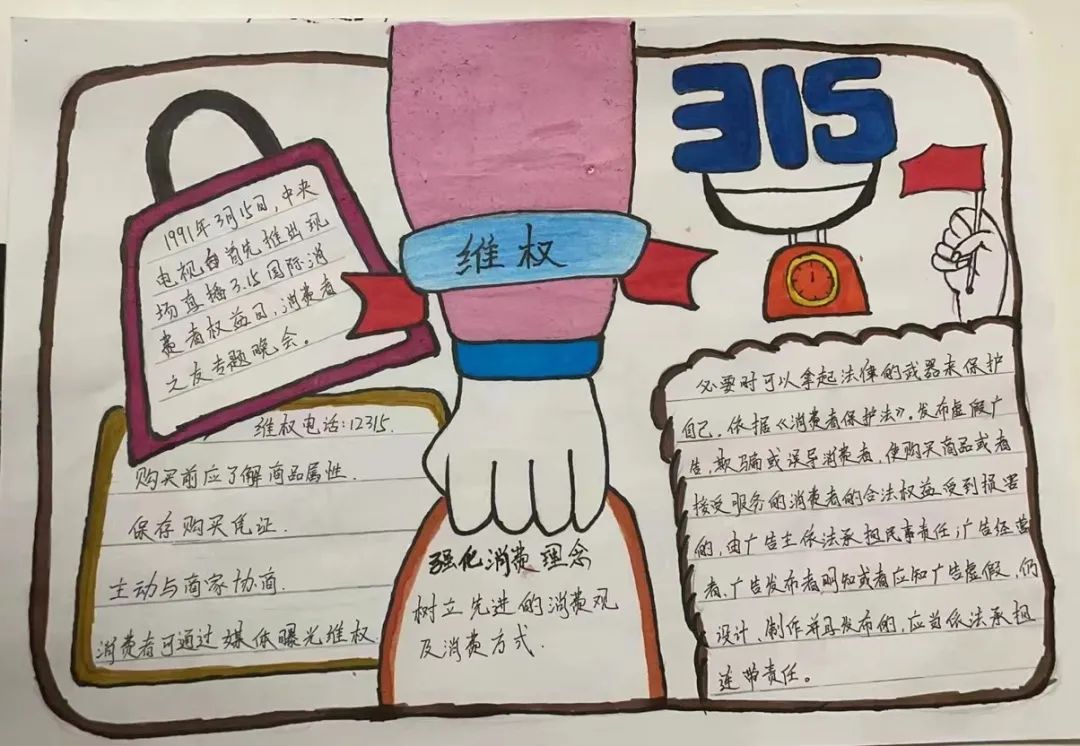 315
维权
1991年3月15日，中央
电视台首先推出现
场直播3.15国际消
费者权益日，消费者
之友专题晚会。
维权电话：12315.
购买前应了解商品属性.
保存购买凭证.
主动与商家协商.
消费者可通过媒体曝光维权.
强化消费理念
树立先进的消费观
及消费方式.
必要时可以拿起法律的武器来保护
自己，依据《消费者保护法》。发布虚假广
告，欺骗或误导消费者，使购买商品或者
接受服务的消费者的合法权益受到损害
的，由广告主依法承担民事责任；广告经营
者、广告发布者明知或者应知广告虚假，仍
设计、制作并且发布的，应当依法承担
连带责任。